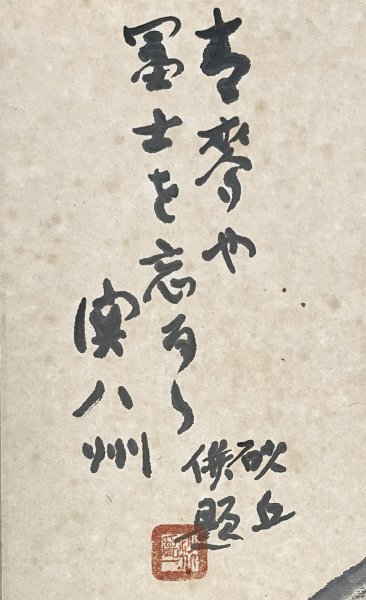 青麥や
冨士を忘るゝ
関八州
砂丘
併題